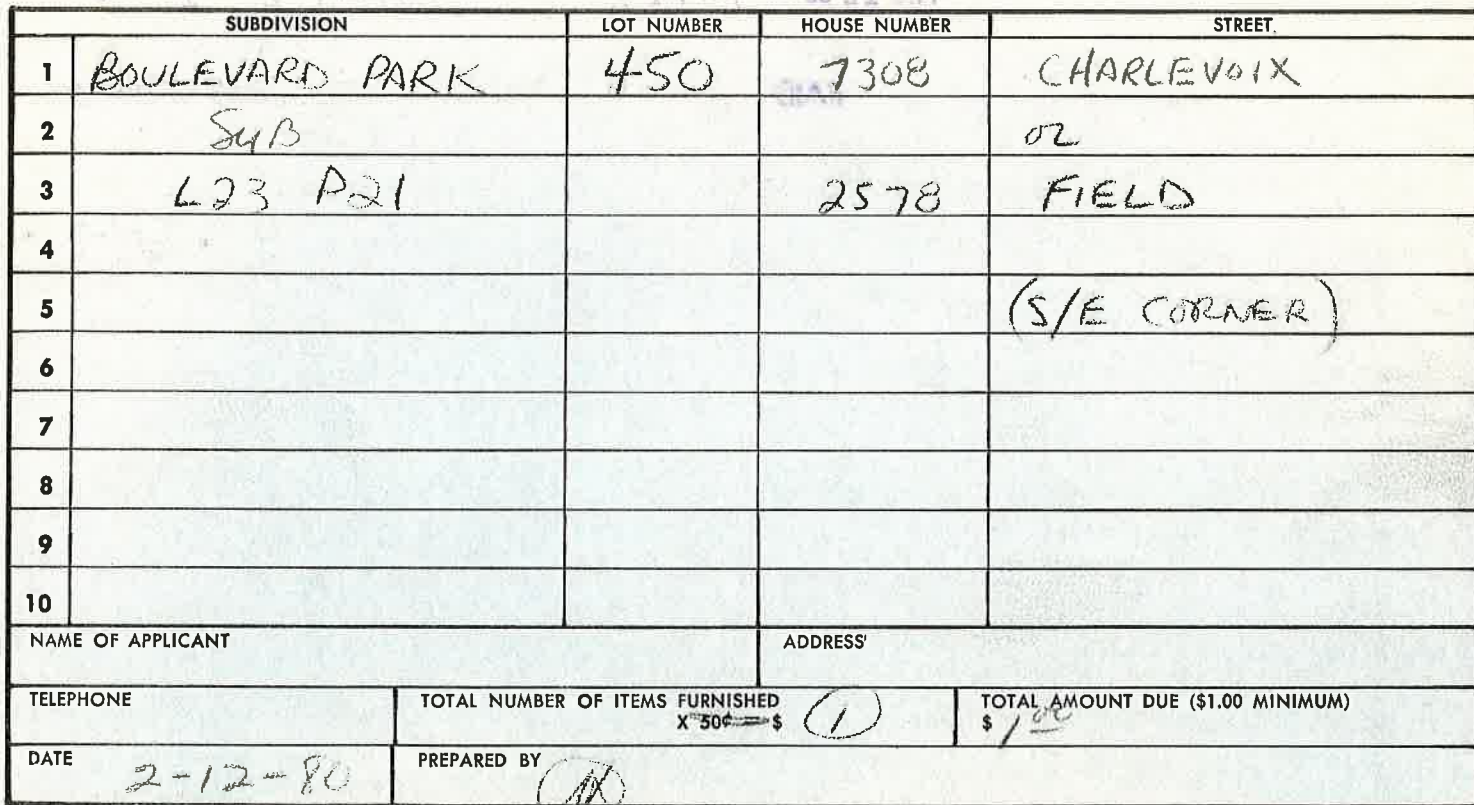 SUBDIVISION LOT NUMBER HOUSE NUMBER STREET
1 BOULEVARD PARK 450 7308 CHARLEVOIX
2 SUB or
3 L23 P21 2578 FIELD
4
5 (S/E CORNER)
6
7
8
9
10
NAME OF APPLICANT ADDRESS
TELEPHONE TOTAL NUMBER OF ITEMS FURNISHED TOTAL AMOUNT DUE ($1.00 MINIMUM)
X 50¢ = $ 1 $ 1 00
DATE 2-12-80 PREPARED BY